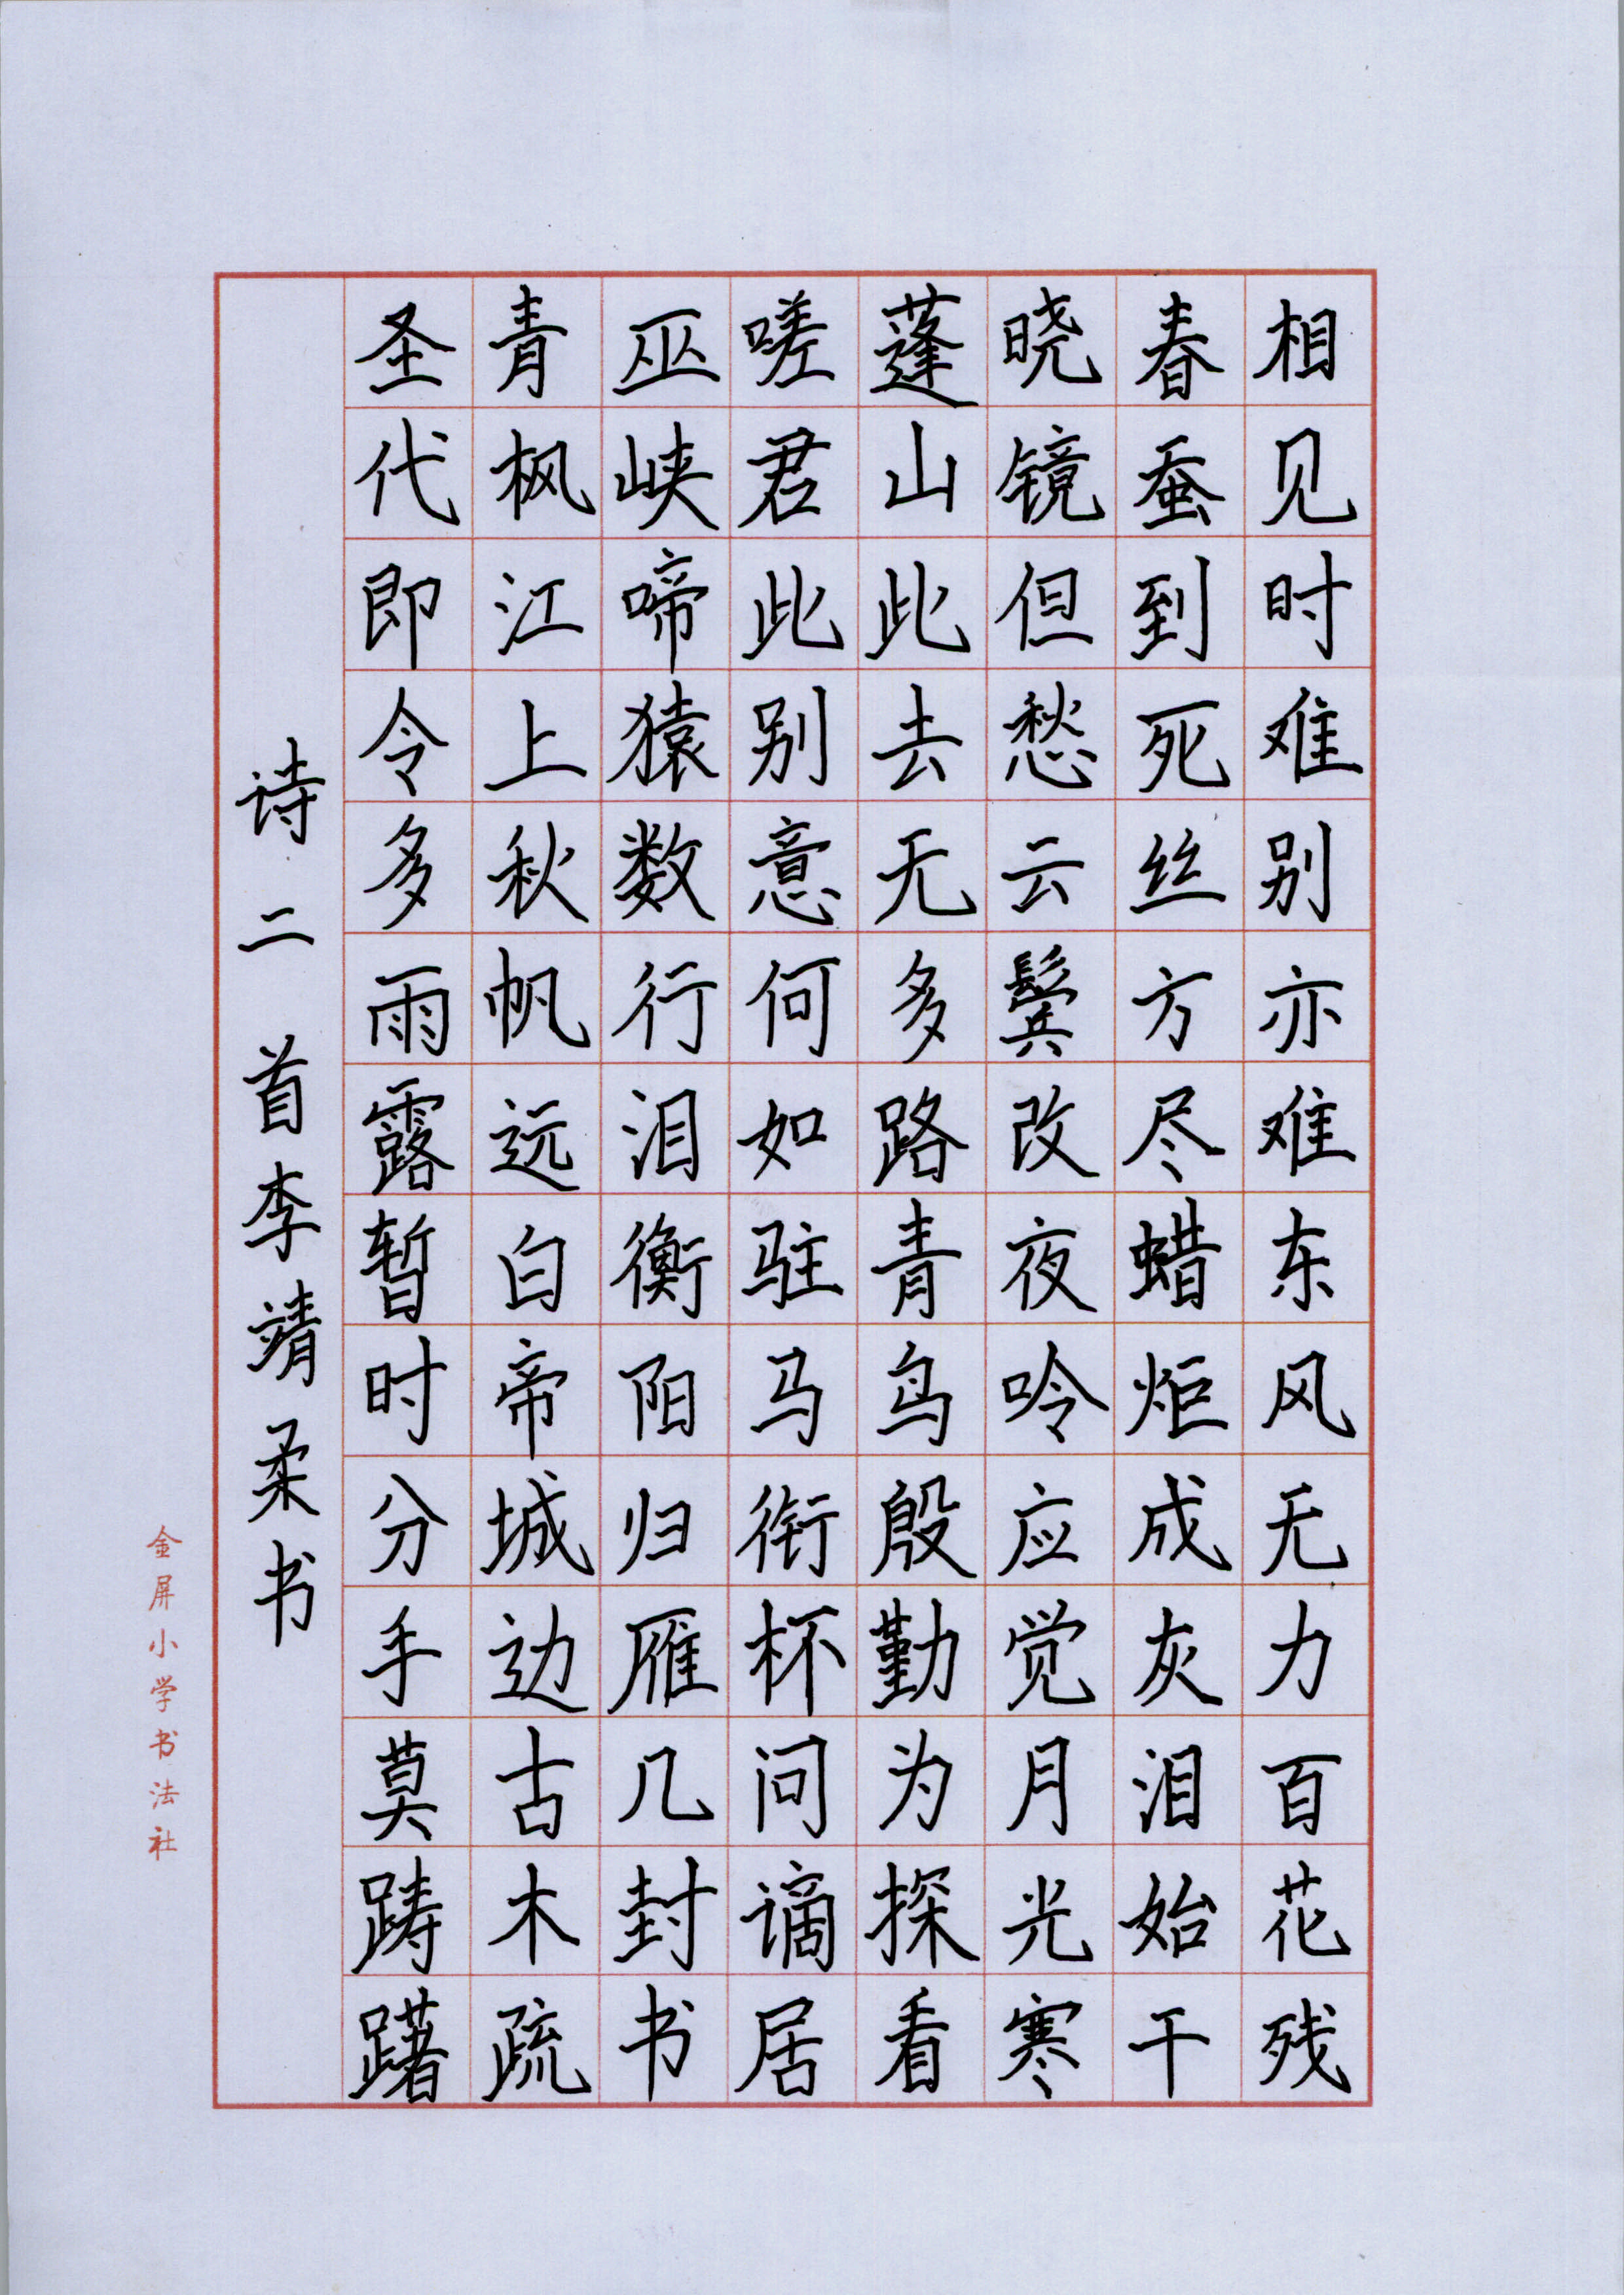 相见时难别亦难东风无力百花残
春蚕到死丝方尽蜡炬成灰泪始干
晓镜但愁云鬓改夜吟应觉月光寒
蓬山此去无多路青鸟殷勤为探看
嗟君此别意何如驻马衔杯问谪居
巫峡啼猿数行泪衡阳归雁几封书
青枫江上秋帆远白帝城边古木疏
圣代即令多雨露暂时分手莫踌躇
诗二首李靖柔书
金屏小学书法社